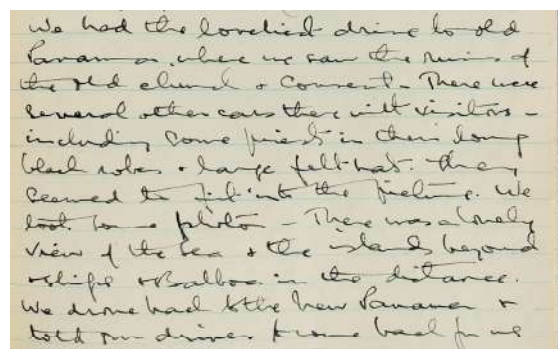 We had the loveliest drive to old
Panama, where we saw the ruins of
the old church & Convent - There were
several other cars there with visitors -
including some priests in their long
black robes & large felt hats. They
seemed to fit into the picture. We
took some photos - There was a lovely
view of the sea & the islands beyond
& ships & Balboa in the distance.
We drove back to the new Panama &
told our driver to come back for us